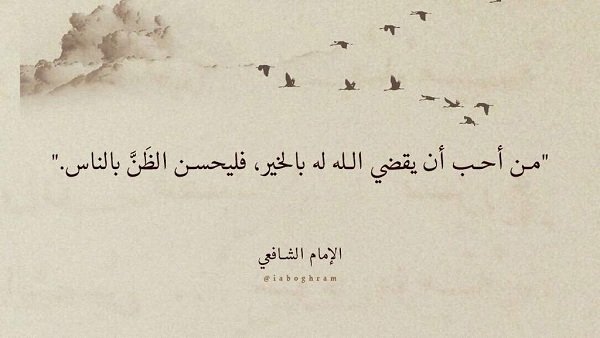 "من أحب أن يقضي الله له بالخير، فليحسن الظَنَّ بالناس."
الإمام الشافعي
@iaboghram